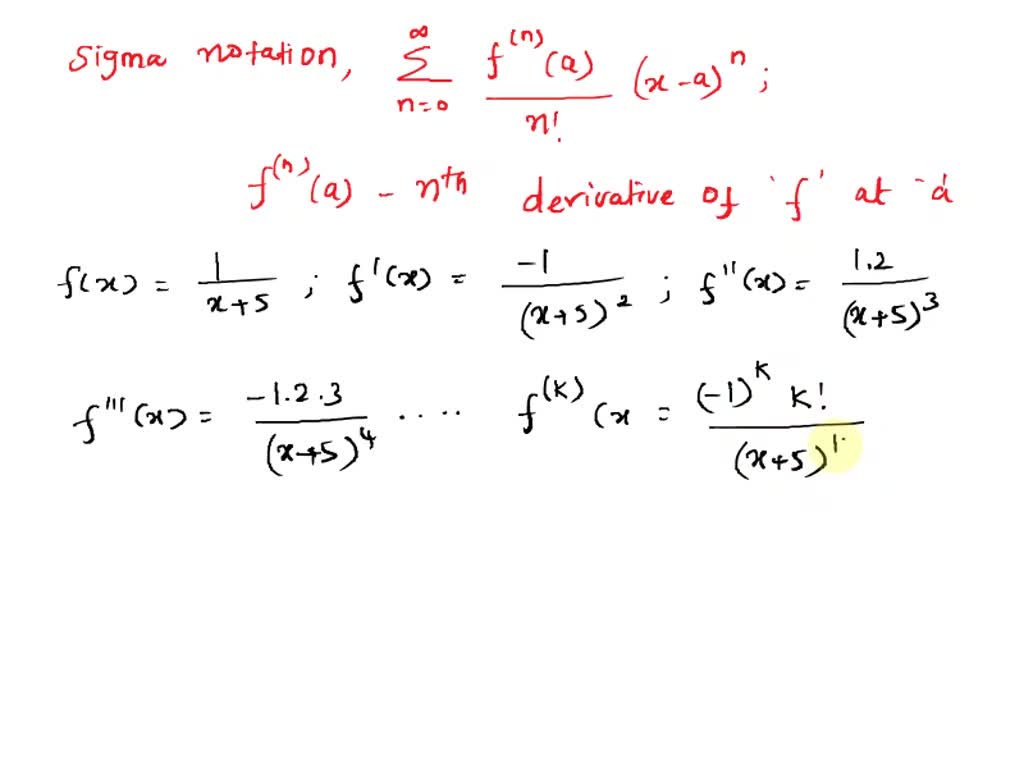 Sigma notation, ∞ Σ n=0 f^(n)(a) / n! (x-a)^n ;
f^(n)(a) - nth derivative of 'f' at 'a
f(x) = 1/(x+5) ; f'(x) = -1/(x+5)^2 ; f''(x) = 1.2/(x+5)^3
f'''(x) = -1.2.3/(x+5)^4 .... f^(k)(x = (-1)^k k!/(x+5)